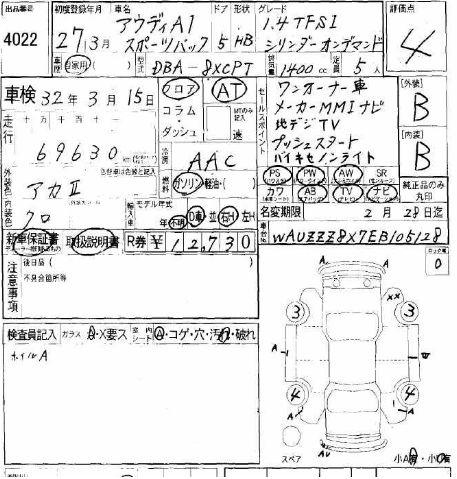 出品番号 4022
初度登録年月 27年3月
車名 アウディA1 スポーツバック
ドア 形状 5 HB
グレード 1.4 TFSI シリンダーオンデマンド
評価点 4
車歴 自家用( ) 型式 DBA-8XCPT 排気量 1400cc 定員 5人
車検 32年3月15日
フロア コラム ダッシュ
AT 速
セールスポイント
ワンオーナー車
メーカーMMIナビ
地デジTV
プッシュスタート
バイキセノンライト
[外装] B
[内装] B
走行 十万千百十一
69630
冷房 AAC
外装色 アカⅡ
燃料 ガソリン・軽油・( )
PS PW AW SR
カワ AB TV ナビ
純正品のみ丸印
内装色 クロ
輸入車 モデル年式 不明 D車・並 右H・左H
名変期限 2月28日迄
新車保証書 取扱説明書 R券 ¥12,730
車台No. WAUZZZ8X7EB105128
注意事項 後日品( )
不具合箇所等
0
検査員記入 ガラス A・X要ス 室内シート A・コゲ・穴・汚れ・破れ
ホイルA
A A
XX
3 3
A
4 4
A A
AU
スペア
小A有・小U有